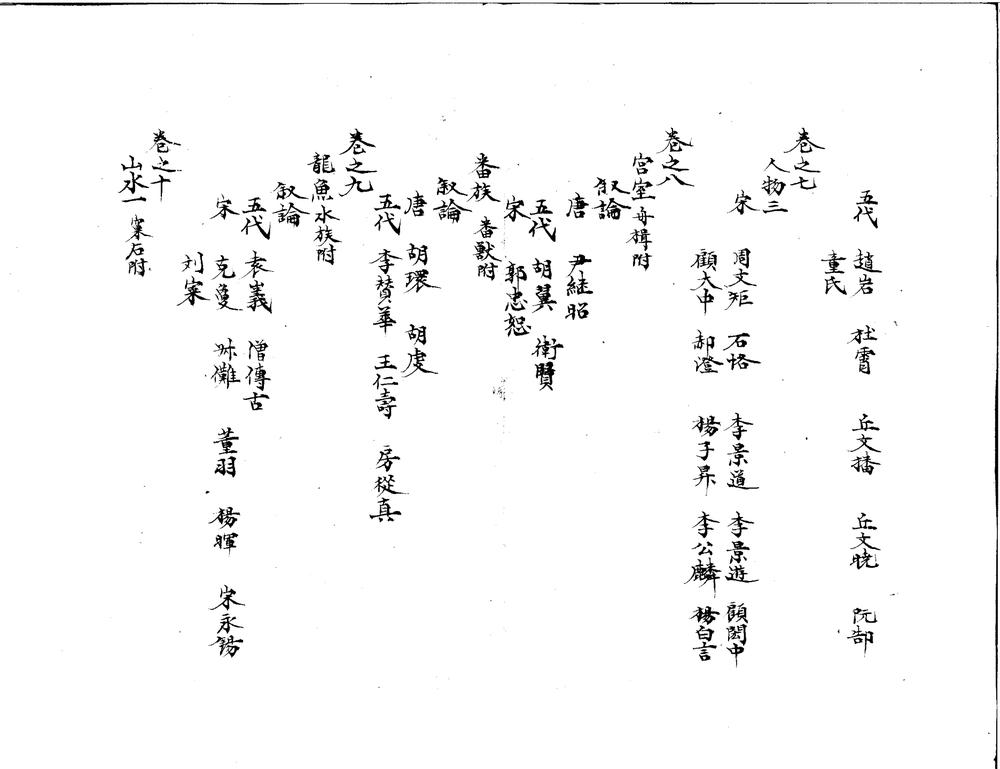 五代 趙岩 杜霄 丘文播 丘文曉 阮郜
童氏
卷之七
人物三
宋 周文矩 石恪 李景道 李景遊 顧閎中
顧大中 郝澄 楊子昇 李公麟 楊日言
卷之八
宮室 舟楫附
叙論
唐 尹継昭
五代 胡翼 衛賢
宋 郭忠恕
番族 番獸附
叙論
唐 胡瓌 胡虔
五代 李賛華 王仁壽 房從真
卷之九
龍魚 水族附
叙論
五代 袁義 僧傳古
宋 克敻 叔儺 董羽 楊暉 宋永錫
刘寀
卷之十
山水一 窠石附